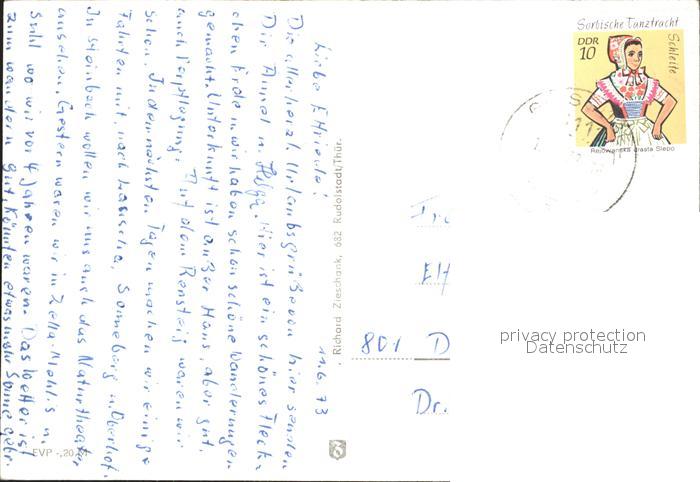 11.6.73
Liebe Elfriede!
Die allerherzl. Urlaubsgrüße von hier senden
Dir Annel u. Helga. Hier ist ein schönes Fleck-
chen Erde u. wir haben schon schöne Wanderungen
gemacht. Unterkunft ist außer Haus, aber gut,
auch Verpflegung. Auf dem Rennsteig waren wir
schon. In den nächsten Tagen machen wir einige
Fahrten mit, nach Lauscha, Sonneberg u. Oberhof.
In Steinbach wollen wir uns auch das Naturtheater
ansehen. Gestern waren wir in Zella-Mehlis u.
Suhl wo wir vor 4 Jahren waren. Das Wetter ist
zum wandern gut, könnten etwas mehr Sonne gebr.
EVP -,20 M
Richard Zieschank, 682 Rudolstadt/Thür.
Sorbische Tanztracht
DDR
10
Schleife
Rejowanska drasta Slepo
Elf
801 D
Dr.
privacy protection
Datenschutz